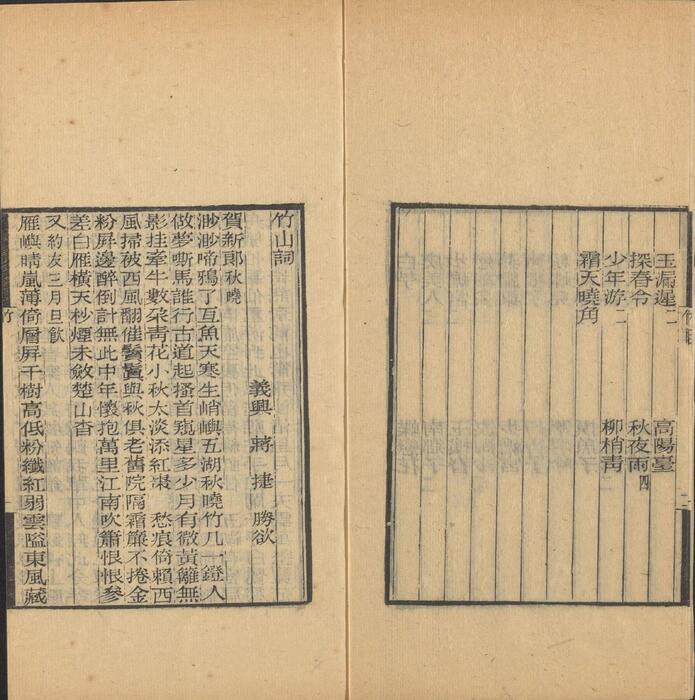 玉漏遲二 高陽臺
探春令 秋夜雨四
少年游二 柳梢青
霜天曉角
竹目
二
竹山詞
義興 蔣捷 勝欲
賀新郎秋曉
渺渺啼鴉了亙魚天寒生峭嶼五湖秋曉竹几一鐙人
做夢嘶馬誰行古道起搔首窺星多少月有微黃籬無
影挂牽牛數朶靑花小秋太淡添紅棗 愁痕倚賴西
風掃被西風翻催鬢鬒與秋俱老舊院隔霜簾不捲金
粉屏邊醉倒計無此中年懷抱萬里江南吹簫恨恨參
差白雁橫天杪煙未斂楚山杳
又約友三月旦飮
雁嶼晴嵐薄倚層屏千樹高低粉纖紅弱雲隘東風藏
竹
一